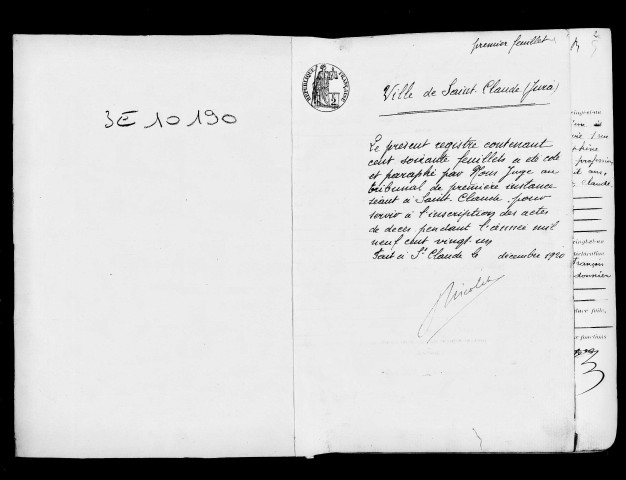 3E 10 190
premier feuillet
RÉPUBLIQUE FRANÇAISE
2
Ville de Saint Claude (Jura)
Le présent registre contenant
cent soixante feuillets a été coté
et paraphé par Nous Juge au
tribunal de première instance
séant à Saint-Claude pour
servir à l'inscription des actes
de décès pendant l'année mil
neuf cent vingt-un
Fait à St Claude le décembre 1920
Nicolet
2
vingt-et-un
profession
ans,
Claude,
vingt-et-un
François
fonctions